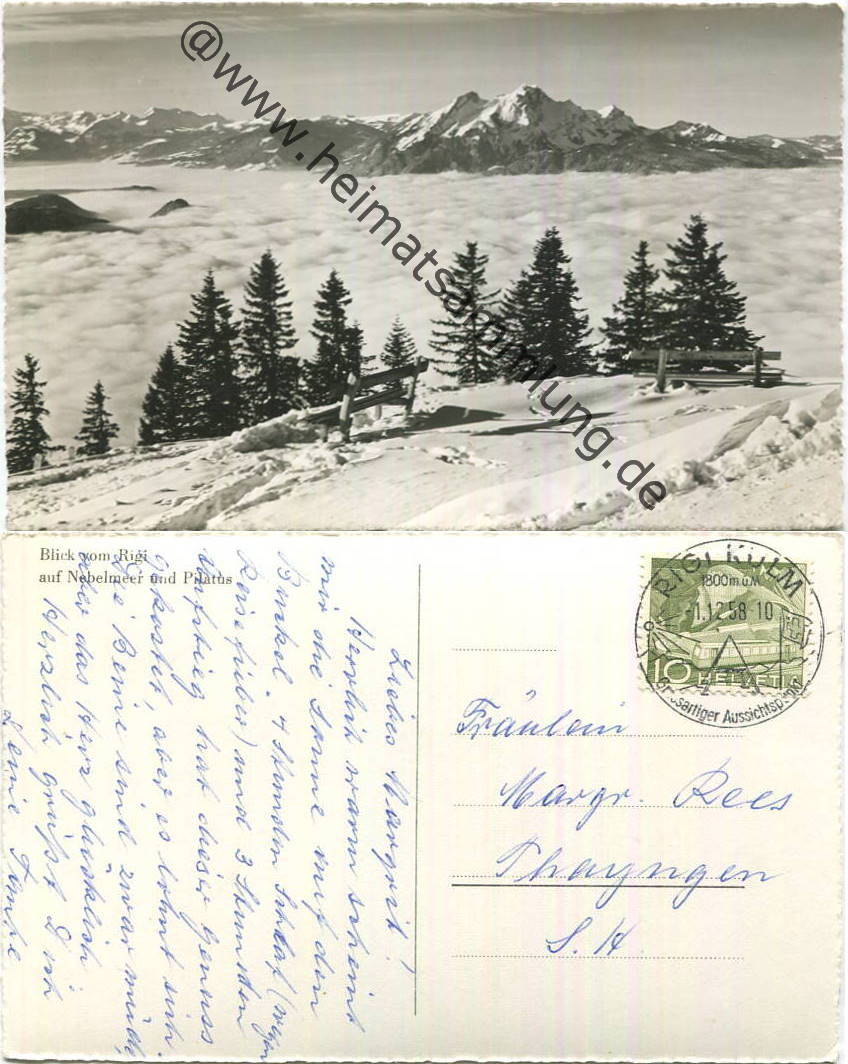 @www.heimatsammlung.de
Blick vom Rigi
auf Nebelmeer und Pilatus
RIGI KULM
1800 m ü.M.
-1.12.58-10
10 HELVETIA
Grossartiger Aussichtspunkt
Liebes Margrit!
Herrlich warm scheint
mir die Sonne auf den
Buckel. 4 Stunden Schlaf (wegen
Reisefieber) und 3 Stunden
Aufstieg hat dieser Genuss
gekostet, aber es lohnt sich.
Die Beine sind zwar müde,
aber das Herz glücklich
Herzlich grüsst Dich
Deine Tante
Fräulein
Margr. Rees
Thayngen
S.H.